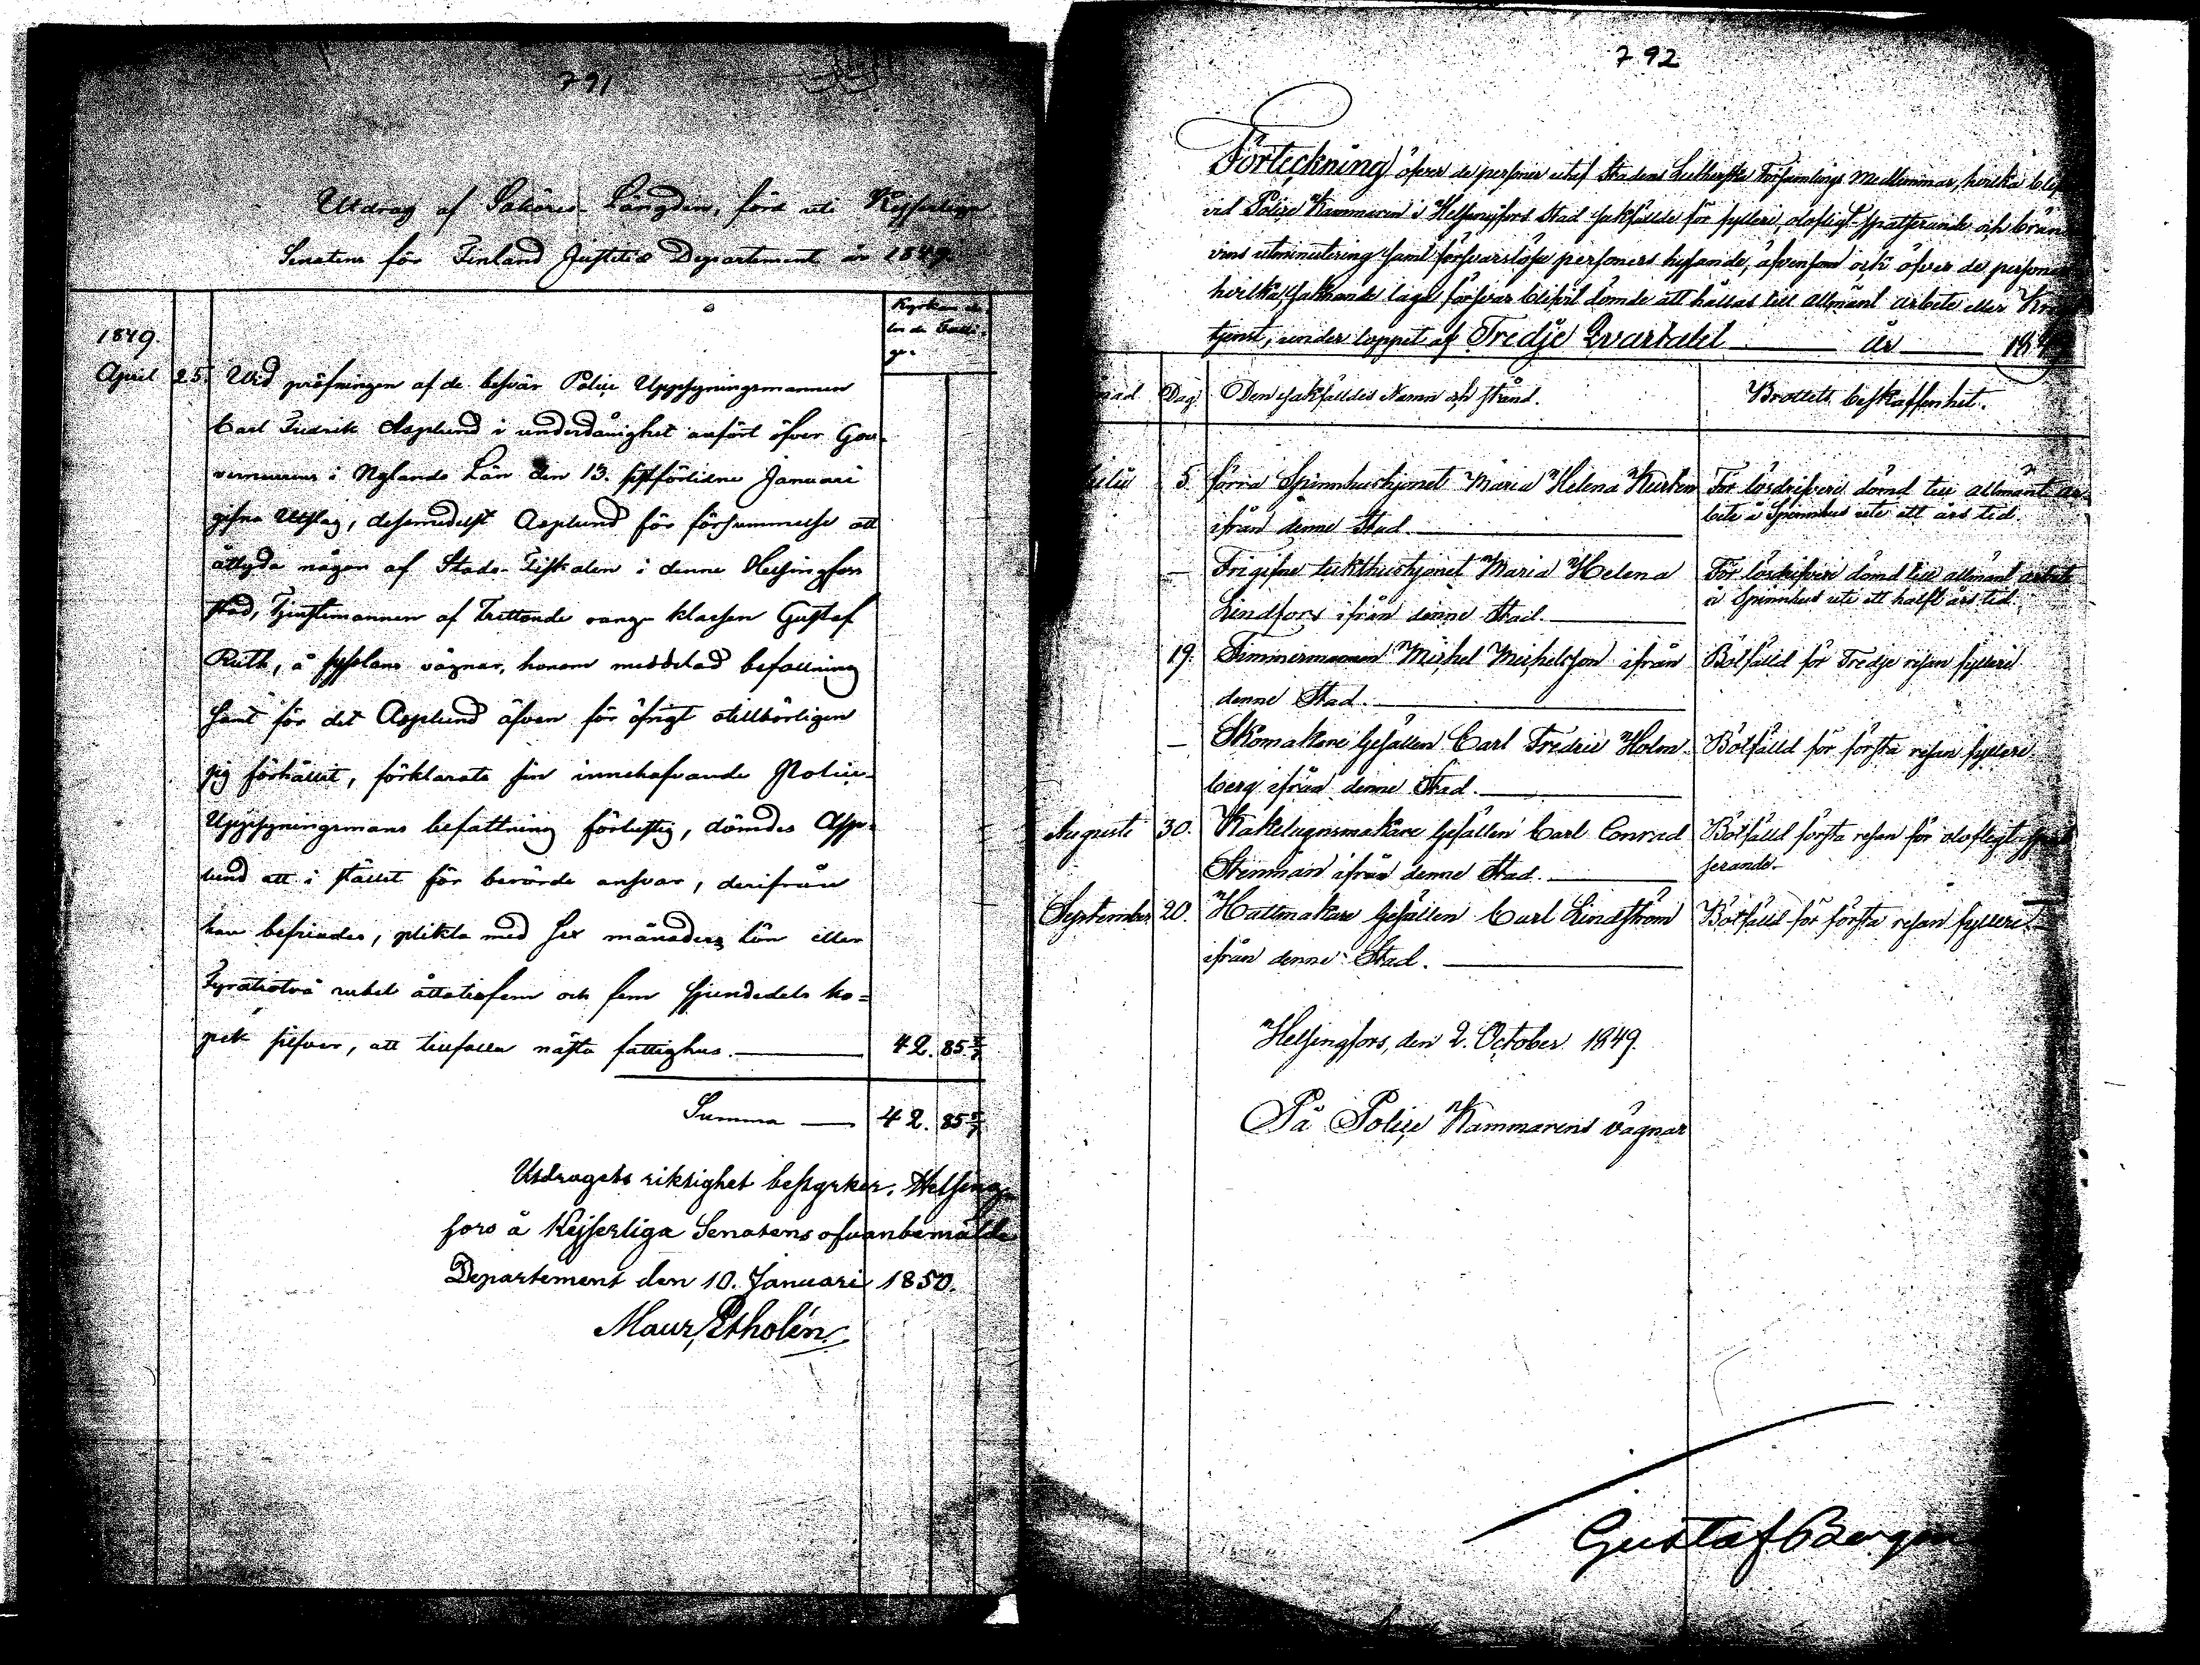 791
Utdrag af Saköres-Längden, förd uti Kejserliga
Senatens för Finland Justitie Departement år 1849.
1849.
April 25. Vid pröfningen af de besvär Police Uppsyningsmannen
Carl Fredrik Asplund i underdånighet anfört öfver Gou-
verneurens i Nylands Län den 13. sistförlidne Januari
gifna Utslag, desmedelst Asplund för försummelse att
åtlyda någon af Stads-Fiskalen i denne Helsingfors
stad, Tjenstemannen af Trettonde rang-klassen Gustaf
Ruth, å sysslans vägnar, honom meddelad befallning
samt för det Asplund äfven för öfrigt otillbörligen
sig förhållit, förklarats sin innehafvande Police-
Uppsyningsmans befattning förlustig, dömdes Asp-
lund att i stället för berörde ansvar, derifrån
han befriades, plikta med sex månaders lön eller
Fyratiotvå rubel åttatiofem och fem sjundedels ko=
pek silfver, att tillfalla nästa fattighus. 42. 85 5/7
Summa 42. 85 5/7
Utdragets riktighet bestyrker, Helsing-
fors å Kejserliga Senatens ofvanbemälde
Departement den 10. Januari 1850.
Maur. Etholén
792
Förteckning öfver de personer utaf Stadens Lutherska Församlings Medlemmar, hvilka blif
vid Police Kammaren i Helsingfors Stad sakfällde för fylleri, olofligt spatserande och brän
vins utminutering samt försvarslöse personers hysande, äfvensom ock öfver de personer
hvilka, saknande lagl försvar blifvit dömde att hållas till allmänt arbete eller
tjenst, under loppet af Tredje Qvartalet år 184
Dag. Den sakfälldes Namn och stånd. Brottets beskaffenhet.
5. förra Spinnhushjonet Maria Helena För lösdrifveri dömd till allmänt ar-
ifrån denne Stad. bete å Spinnhus uti ett års tid.
— Frigifne tukthushjonet Maria Helena För lösdrifveri dömd till allmänt arbete
Lindfors ifrån denne Stad. å Spinnhus uti ett halft års tid.
19. Timmermannen Michel Michelsson ifrån Bötfälld för Tredje resan fylleri
denne Stad.
— Skomakare Gesällen Carl Fredric Holm- Bötfälld för första resan fylleri.
berg ifrån denne Stad.
Augusti 30. Kakelugnsmakare Gesällen Carl Conrad Bötfälld första resan för oloflegt spat
Stenman ifrån denne Stad. serande.
September 20. Hattmakare Gesällen Carl Lindström Bötfälld för första resan fylleri.
ifrån denne Stad.
Helsingfors, den 2. October 1849.
På Police Kammarens vägnar
Gustaf